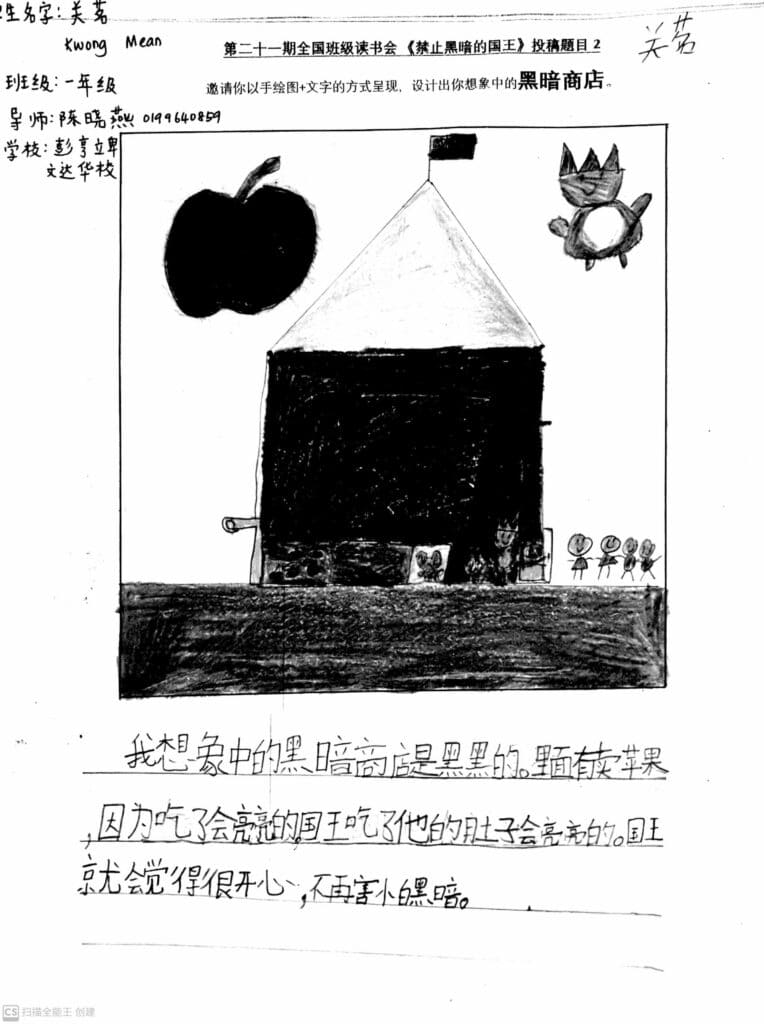 生名字：关茗
Kwong Mean
班级：一年级
导师：陈晓燕 0199640859
学校：彭亨立卑
文达华校
第二十一期全国班级读书会《禁止黑暗的国王》投稿题目 2
关茗
邀请你以手绘图+文字的方式呈现，设计出你想象中的黑暗商店。
我想象中的黑暗商店是黑黑的。里面有卖苹果
，因为吃了会亮亮的。国王吃了他的肚子会亮亮的。国王
就会觉得很开心，不再害怕黑暗。
CS 扫描全能王 创建